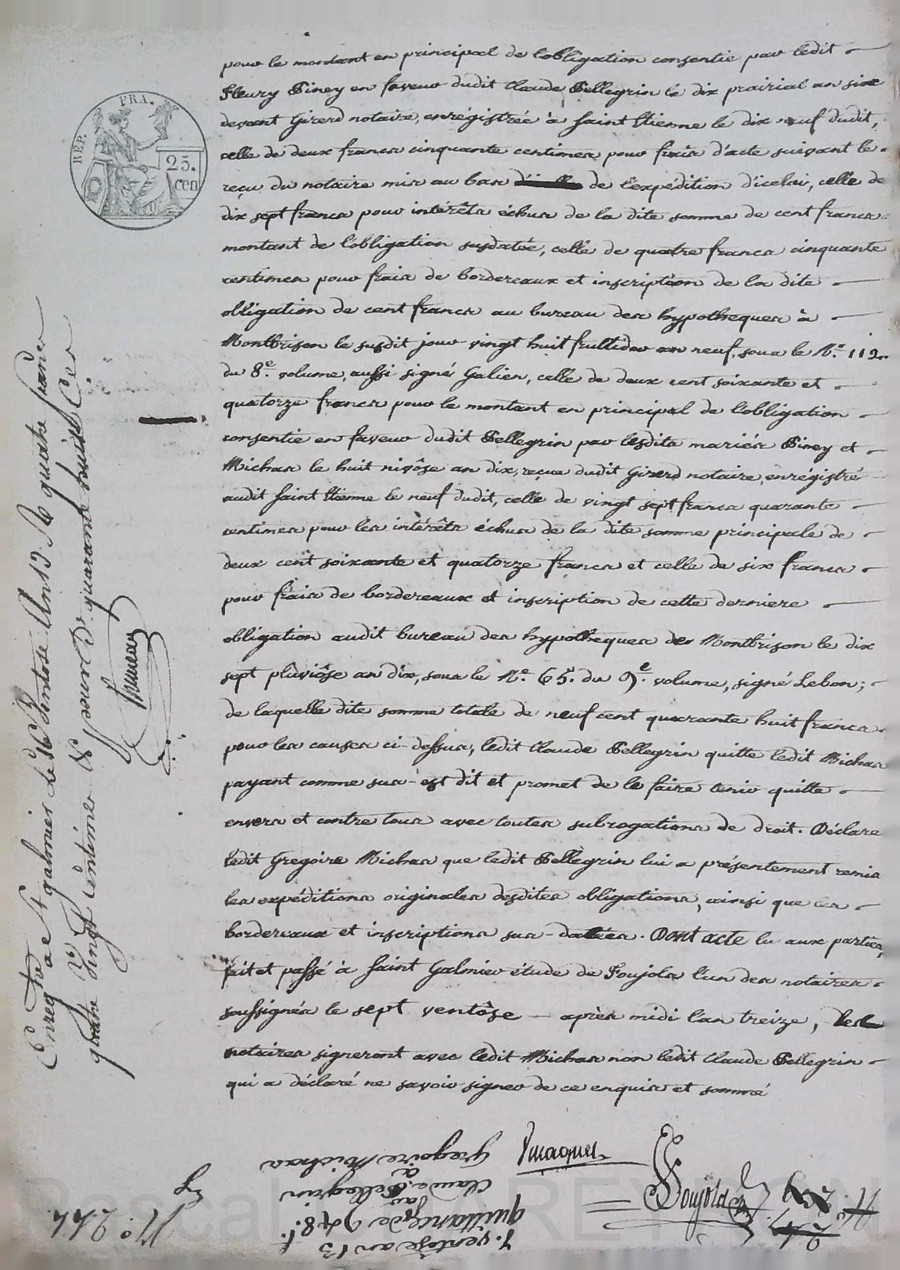 REP. FRA.
25.
cen
pour le montant en principal de l'obligation consentie par ledit
Fleury Piney en faveur dudit Claude Pellegrin le dix prairial an six
devant Girerd notaire, enrégistrée à Saint Etienne le dix neuf dudit,
celle de deux francs cinquante centimes pour frais d'acte suivant le
reçu du notaire mis au bas de l'expédition d'icelui, celle de
dix sept francs pour intérêts échus de la dite somme de cent francs
montant de l'obligation susdatée, celle de quatre francs cinquante
centimes pour frais de bordereaux et inscription de la dite
obligation de cent francs au bureau des hypotheques à
Montbrison le susdit jour vingt huit fruttidor an neuf, sous le N.º 112.
du 8.e volume, aussi signé Galien, celle de deux cent soixante et
quatorze francs pour le montant en principal de l'obligation
consentie en faveur dudit Pellegrin par lesdits mariés Piney et
Michas le huit nivôse an dix, reçue dudit Girerd notaire enrégistré
audit Saint Etienne le neuf dudit, celle de vingt sept francs quarante
centimes pour les intérêts échus de la dite somme principale de
deux cent soixante et quatorze francs et celle de six francs
pour frais de bordereaux et inscription de cette derniere
obligation audit bureau des hypotheques de Montbrison le dix
sept pluviôse an dix, sous le N.º 65. du 9.e volume, signé Lebon;
de laquelle dite somme totale de neuf cent quarante huit francs
pour les causes ci-dessus, ledit Claude Pellegrin quitte ledit Michas
payant comme sus-est dit et promet de le faire tenir quitte
envers et contre tous avec toutes subrogations de droit. Déclare
ledit Grégoire Michas que ledit Pellegrin lui a présentement remis
les expéditions originales desdites obligations, ainsi que les
bordereaux et inscriptions sus-datées. Dont acte lu aux parties,
fait et passé à Saint Galmier étude de Poujols l'un des notaires
soussignés le sept ventôse — après midi l'an treize, les
notaires signeront avec ledit Michas non ledit Claude Pellegrin
qui a déclaré ne savoir signer de ce enquis et sommé
Enregtré a St galmier le ventose An 13 quatre francs
quatre vingt centimes
7. ventôse an 13
quittance de 948 f.
par
Claude Pellegrin
à
Gregoire Michas
N.º 142